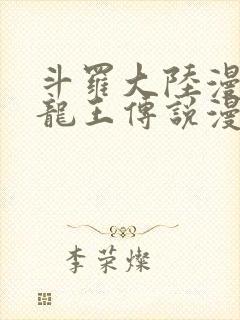 斗羅大陸漫
龍王傳說漫
李荣燦